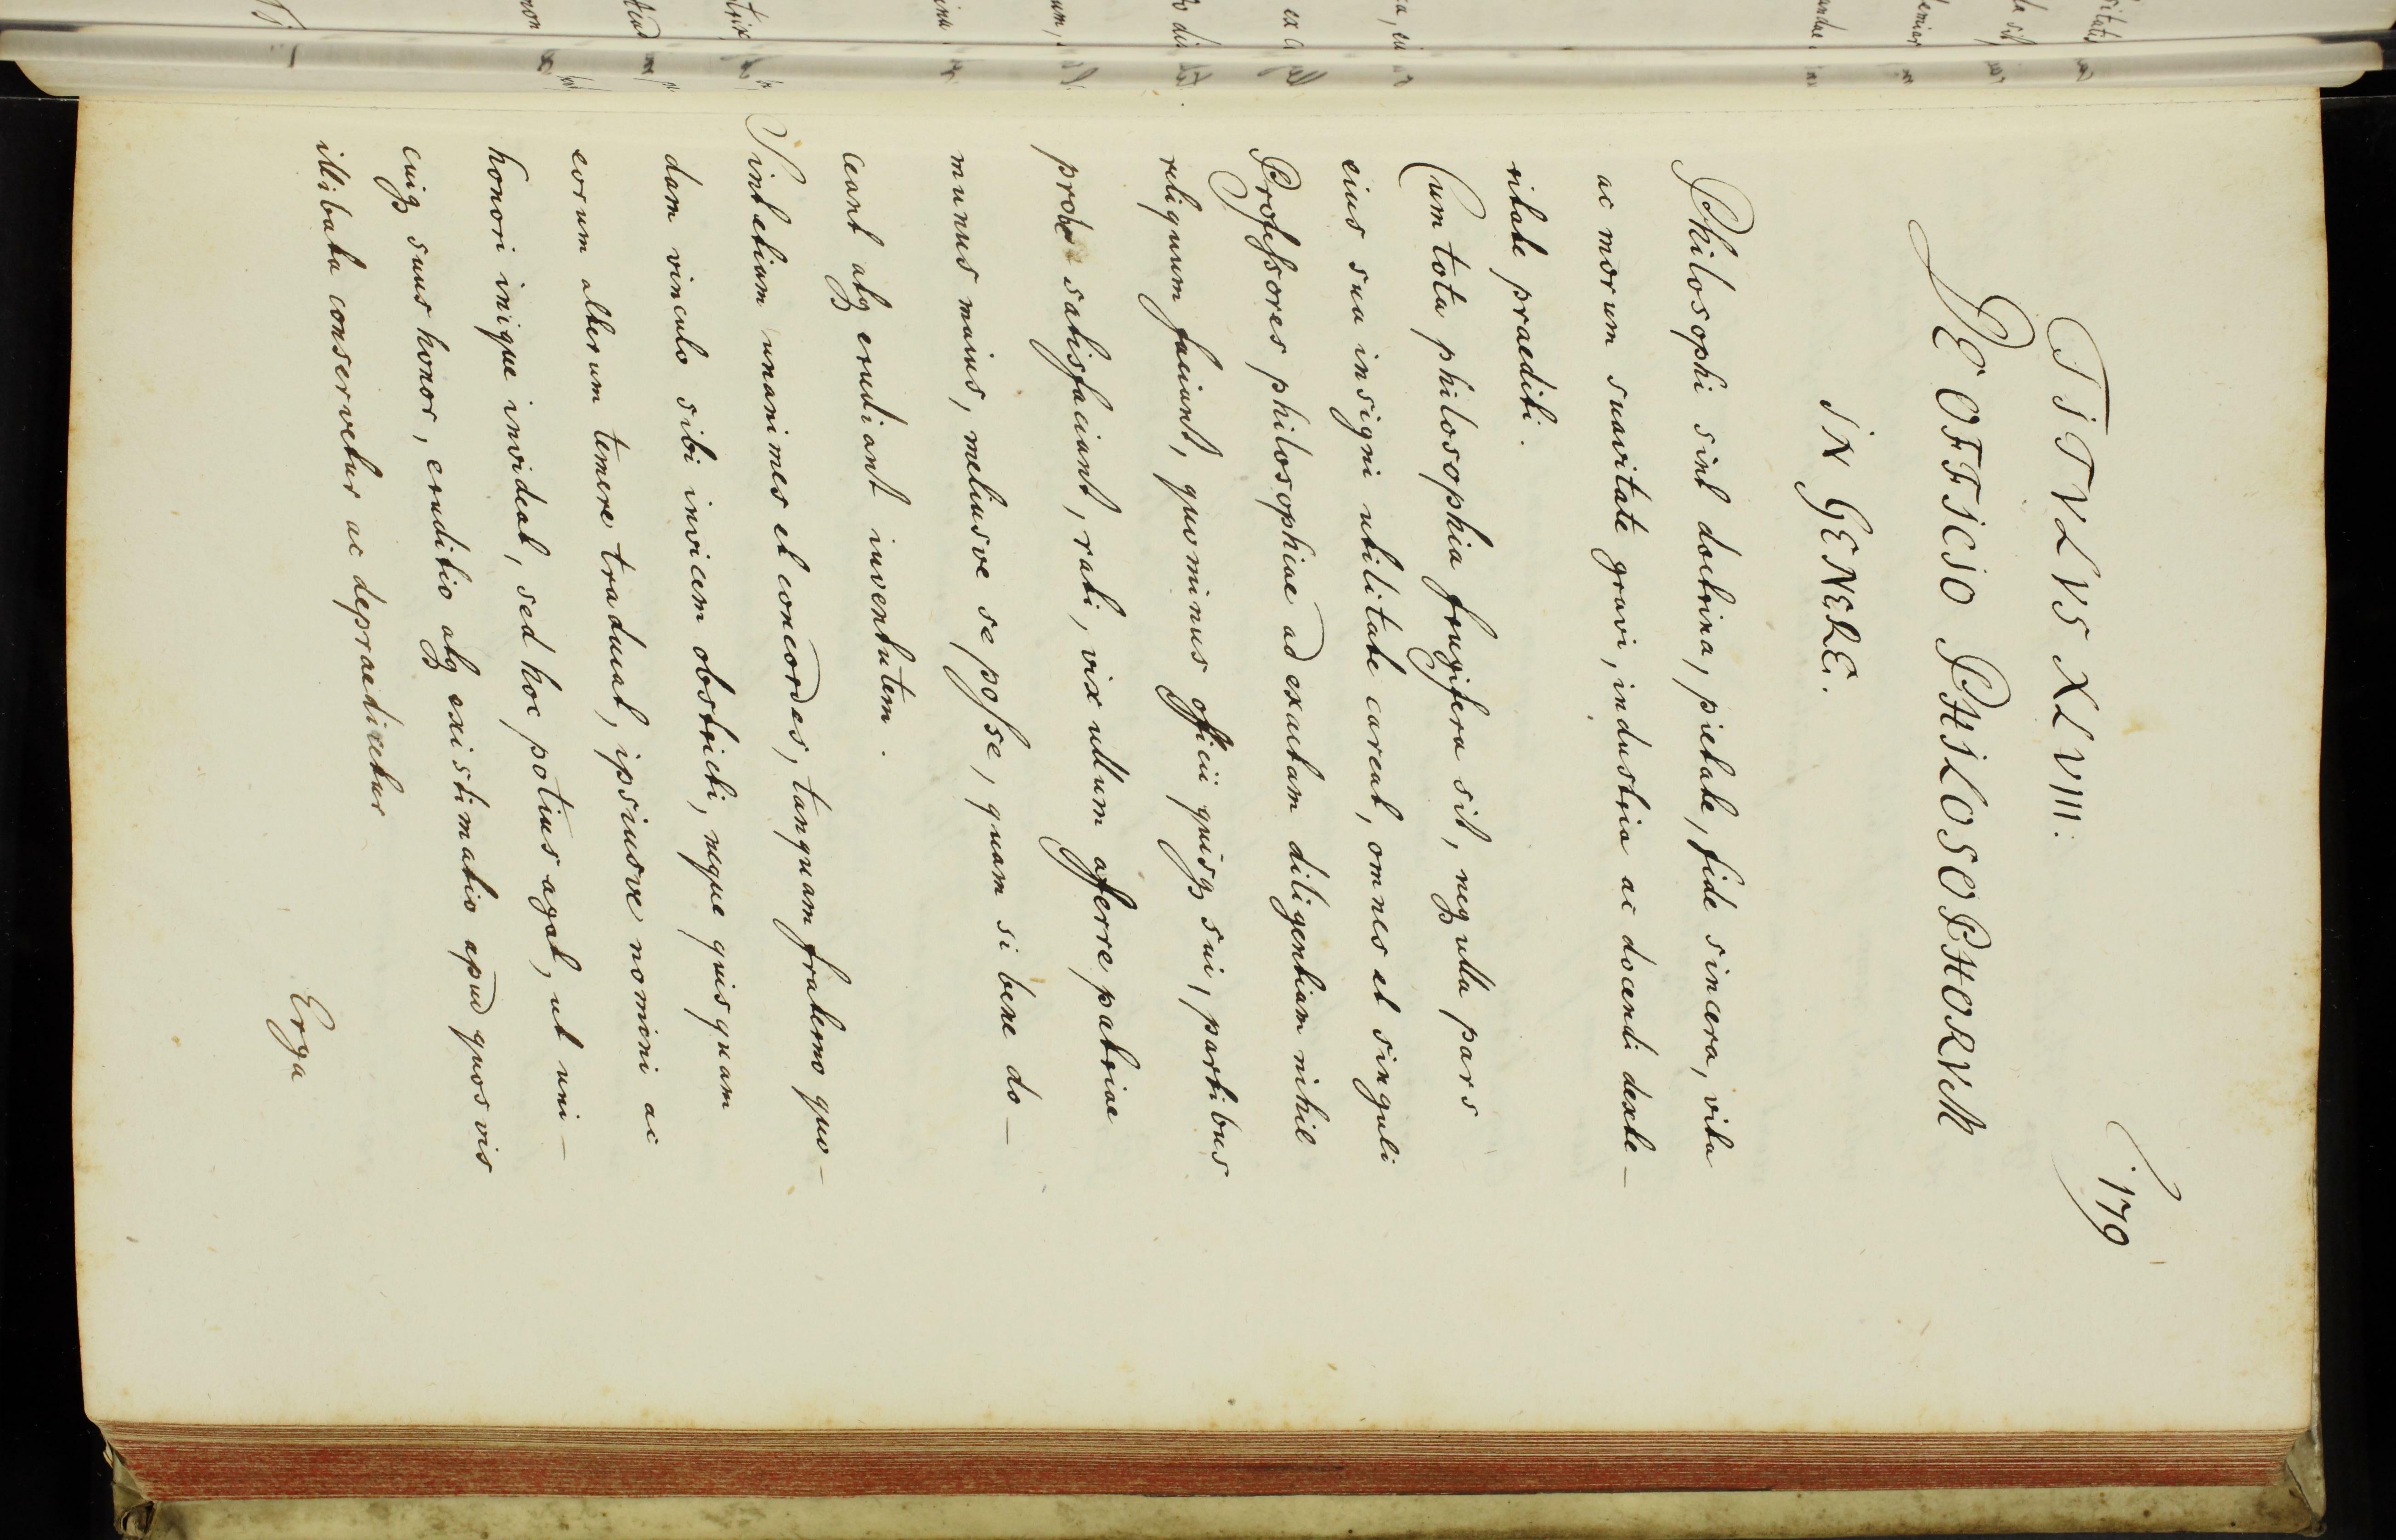 179
TITVLVS XLVIII.
DE OFFICIO PHILOSOPHORVM
IN GENERE.
Philosophi sint doctrina, pietate, fide sincera, vita
ac morum suavitate gravi, industria ac docendi dexte-
ritate praediti.
Cum tota philosophia frugifera sit, neqꝫ ulla pars
eius sua insigni utilitate careat, omnes et singuli
Professores philosophiae ad exactam diligentiam nihil
reliquum faciant, quominus officii quisqꝫ sui, partibus
probe satisfaciant, rati, vix ullum afferre patriae
munus maius, meliusve se posse, quam si bene do-
ceant atqꝫ erudiant iuventutem.
Sint etiam unanimes et concordes, tanquam fraterno quo-
dam vinculo sibi invicem obstricti, neque quisquam
eorum alterum temere traducat, ipsiusve nomini ac
honori inique invideat, sed hoc potius agat, ut uni-
cuiqꝫ suus honor, eruditio atqꝫ existimatio apud quos vis
illibata conservetur ac depraedicetur
Erga